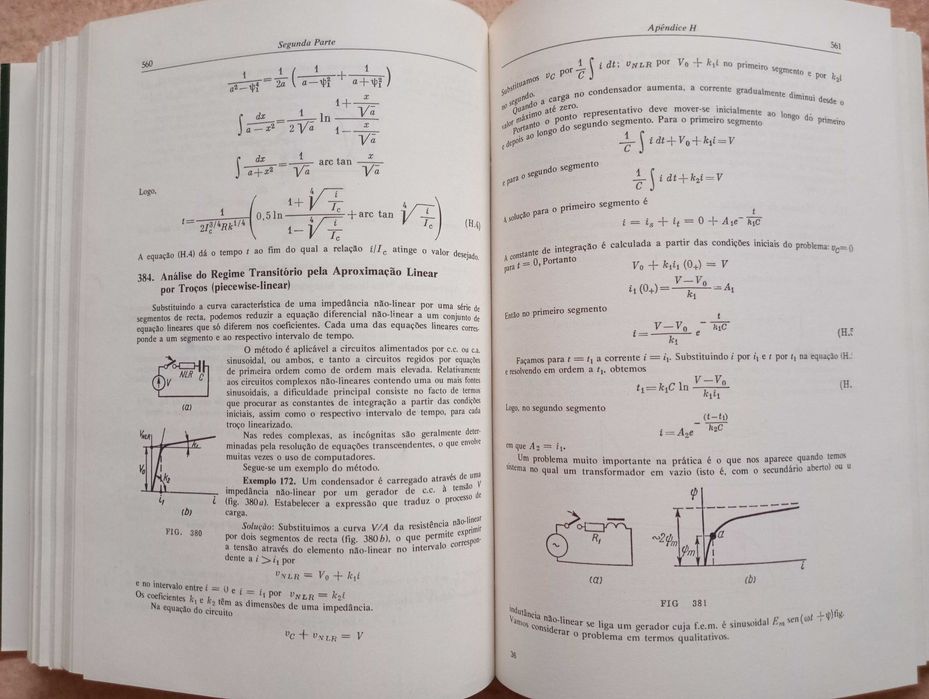 560
Segunda Parte
1/(a²−ψ₁⁴) = 1/2a (1/(a−ψ₁²) + 1/(a+ψ₁²))
∫ dx/(a−x²) = 1/(2√a) ln (1+x/√a)/(1−x/√a)
∫ dx/(a+x²) = 1/√a arc tan x/√a
Logo,
t = 1/(2I_c^{3/4}Rk^{1/4}) (0,5 ln (1+⁴√(i/I_c))/(1−⁴√(i/I_c)) + arc tan ⁴√(i/I_c)) (H.4)
A equação (H.4) dá o tempo t ao fim do qual a relação i/I_c atinge o valor desejado.
384. Análise do Regime Transitório pela Aproximação Linear
por Troços (piecewise-linear)
Substituindo a curva característica de uma impedância não-linear por uma série de
segmentos de recta, podemos reduzir a equação diferencial não-linear a um conjunto de
equação lineares que só diferem nos coeficientes. Cada uma das equações lineares corres-
ponde a um segmento e ao respectivo intervalo de tempo.
O método é aplicável a circuitos alimentados por c.c. ou c.a.
sinusoidal, ou ambos, e tanto a circuitos regidos por equações
de primeira ordem como de ordem mais elevada. Relativamente
aos circuitos complexos não-lineares contendo uma ou mais fontes
sinusoidais, a dificuldade principal consiste no facto de termos
que procurar as constantes de integração a partir das condições
iniciais, assim como o respectivo intervalo de tempo, para cada
troço linearizado.
Nas redes complexas, as incógnitas são geralmente deter-
minadas pela resolução de equações transcendentes, o que envolve
muitas vezes o uso de computadores.
Segue-se um exemplo do método.
Exemplo 172. Um condensador é carregado através de uma
impedância não-linear por um gerador de c.c. à tensão V
(fig. 380a). Estabelecer a expressão que traduz o processo de
carga.
Solução: Substituimos a curva V/A da resistência não-linear
por dois segmentos de recta (fig. 380b), o que permite exprimir
a tensão através do elemento não-linear no intervalo correspon-
dente a i > i₁ por
V
NLR
C
(a)
V_NLR
V₀
k₁
k₂
i₁
i
(b)
FIG. 380
v_NLR = V₀ + k₁i
e no intervalo entre i = 0 e i = i₁ por v_NLR = k₂i
Os coeficientes k₁ e k₂ têm as dimensões de uma impedância.
Na equação do circuito
v_C + v_NLR = V
Apêndice H
561
Substituamos v_C por 1/C ∫ i dt; v_NLR por V₀ + k₁i no primeiro segmento e por k₂i
no segundo.
Quando a carga no condensador aumenta, a corrente gradualmente diminui desde o
valor máximo até zero.
Portanto o ponto representativo deve mover-se inicialmente ao longo do primeiro
e depois ao longo do segundo segmento. Para o primeiro segmento
1/C ∫ i dt + V₀ + k₁i = V
e para o segundo segmento
1/C ∫ i dt + k₂i = V
A solução para o primeiro segmento é
i = i_s + i_t = 0 + A₁e^{−t/(k₁C)}
A constante de integração é calculada a partir das condições iniciais do problema: v_C = 0
para t = 0, Portanto
V₀ + k₁i₁ (0₊) = V
i₁ (0₊) = (V−V₀)/k₁ = A₁
Então no primeiro segmento
i = (V−V₀)/k₁ e^{−t/(k₁C)} (H.5
Façamos para t = t₁ a corrente i = i₁. Substituindo i por i₁ e t por t₁ na equação (H.
e resolvendo em ordem a t₁, obtemos
t₁ = k₁C ln (V−V₀)/(k₁i₁) (H.
Logo, no segundo segmento
i = A₂e^{−(t−t₁)/(k₂C)}
em que A₂ = i₁.
Um problema muito importante na prática é o que nos aparece quando temos
sistema no qual um transformador em vazio (isto é, com o secundário aberto) ou u
R₁
(a)
Φ
~2Φ_m
Φ_m
a
i
(b)
FIG 381
indutância não-linear se liga um gerador cuja f.e.m. é sinusoidal E_m sen (ωt + ψ) fig.
Vamos considerar o problema em termos qualitativos.
36